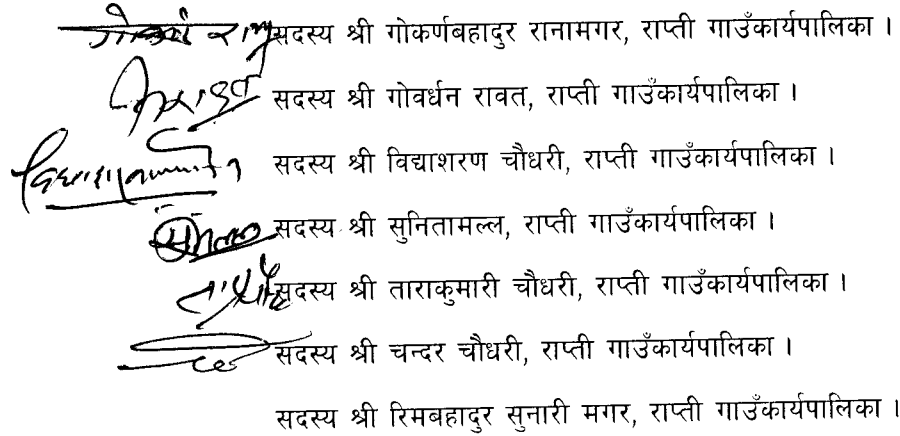 सदस्य श्री गोकर्णबहादुर रानामगर, राप्ती गाउँकार्यपालिका ।
सदस्य श्री गोवर्धन रावत, राप्ती गाउँकार्यपालिका ।
सदस्य श्री विद्याशरण चौधरी, राप्ती गाउँकार्यपालिका ।
सदस्य श्री सुनितामल्ल, राप्ती गाउँकार्यपालिका ।
सदस्य श्री ताराकुमारी चौधरी, राप्ती गाउँकार्यपालिका ।
सदस्य श्री चन्दर चौधरी, राप्ती गाउँकार्यपालिका ।
सदस्य श्री रिमबहादुर सुनारी मगर, राप्ती गाउँकार्यपालिका ।